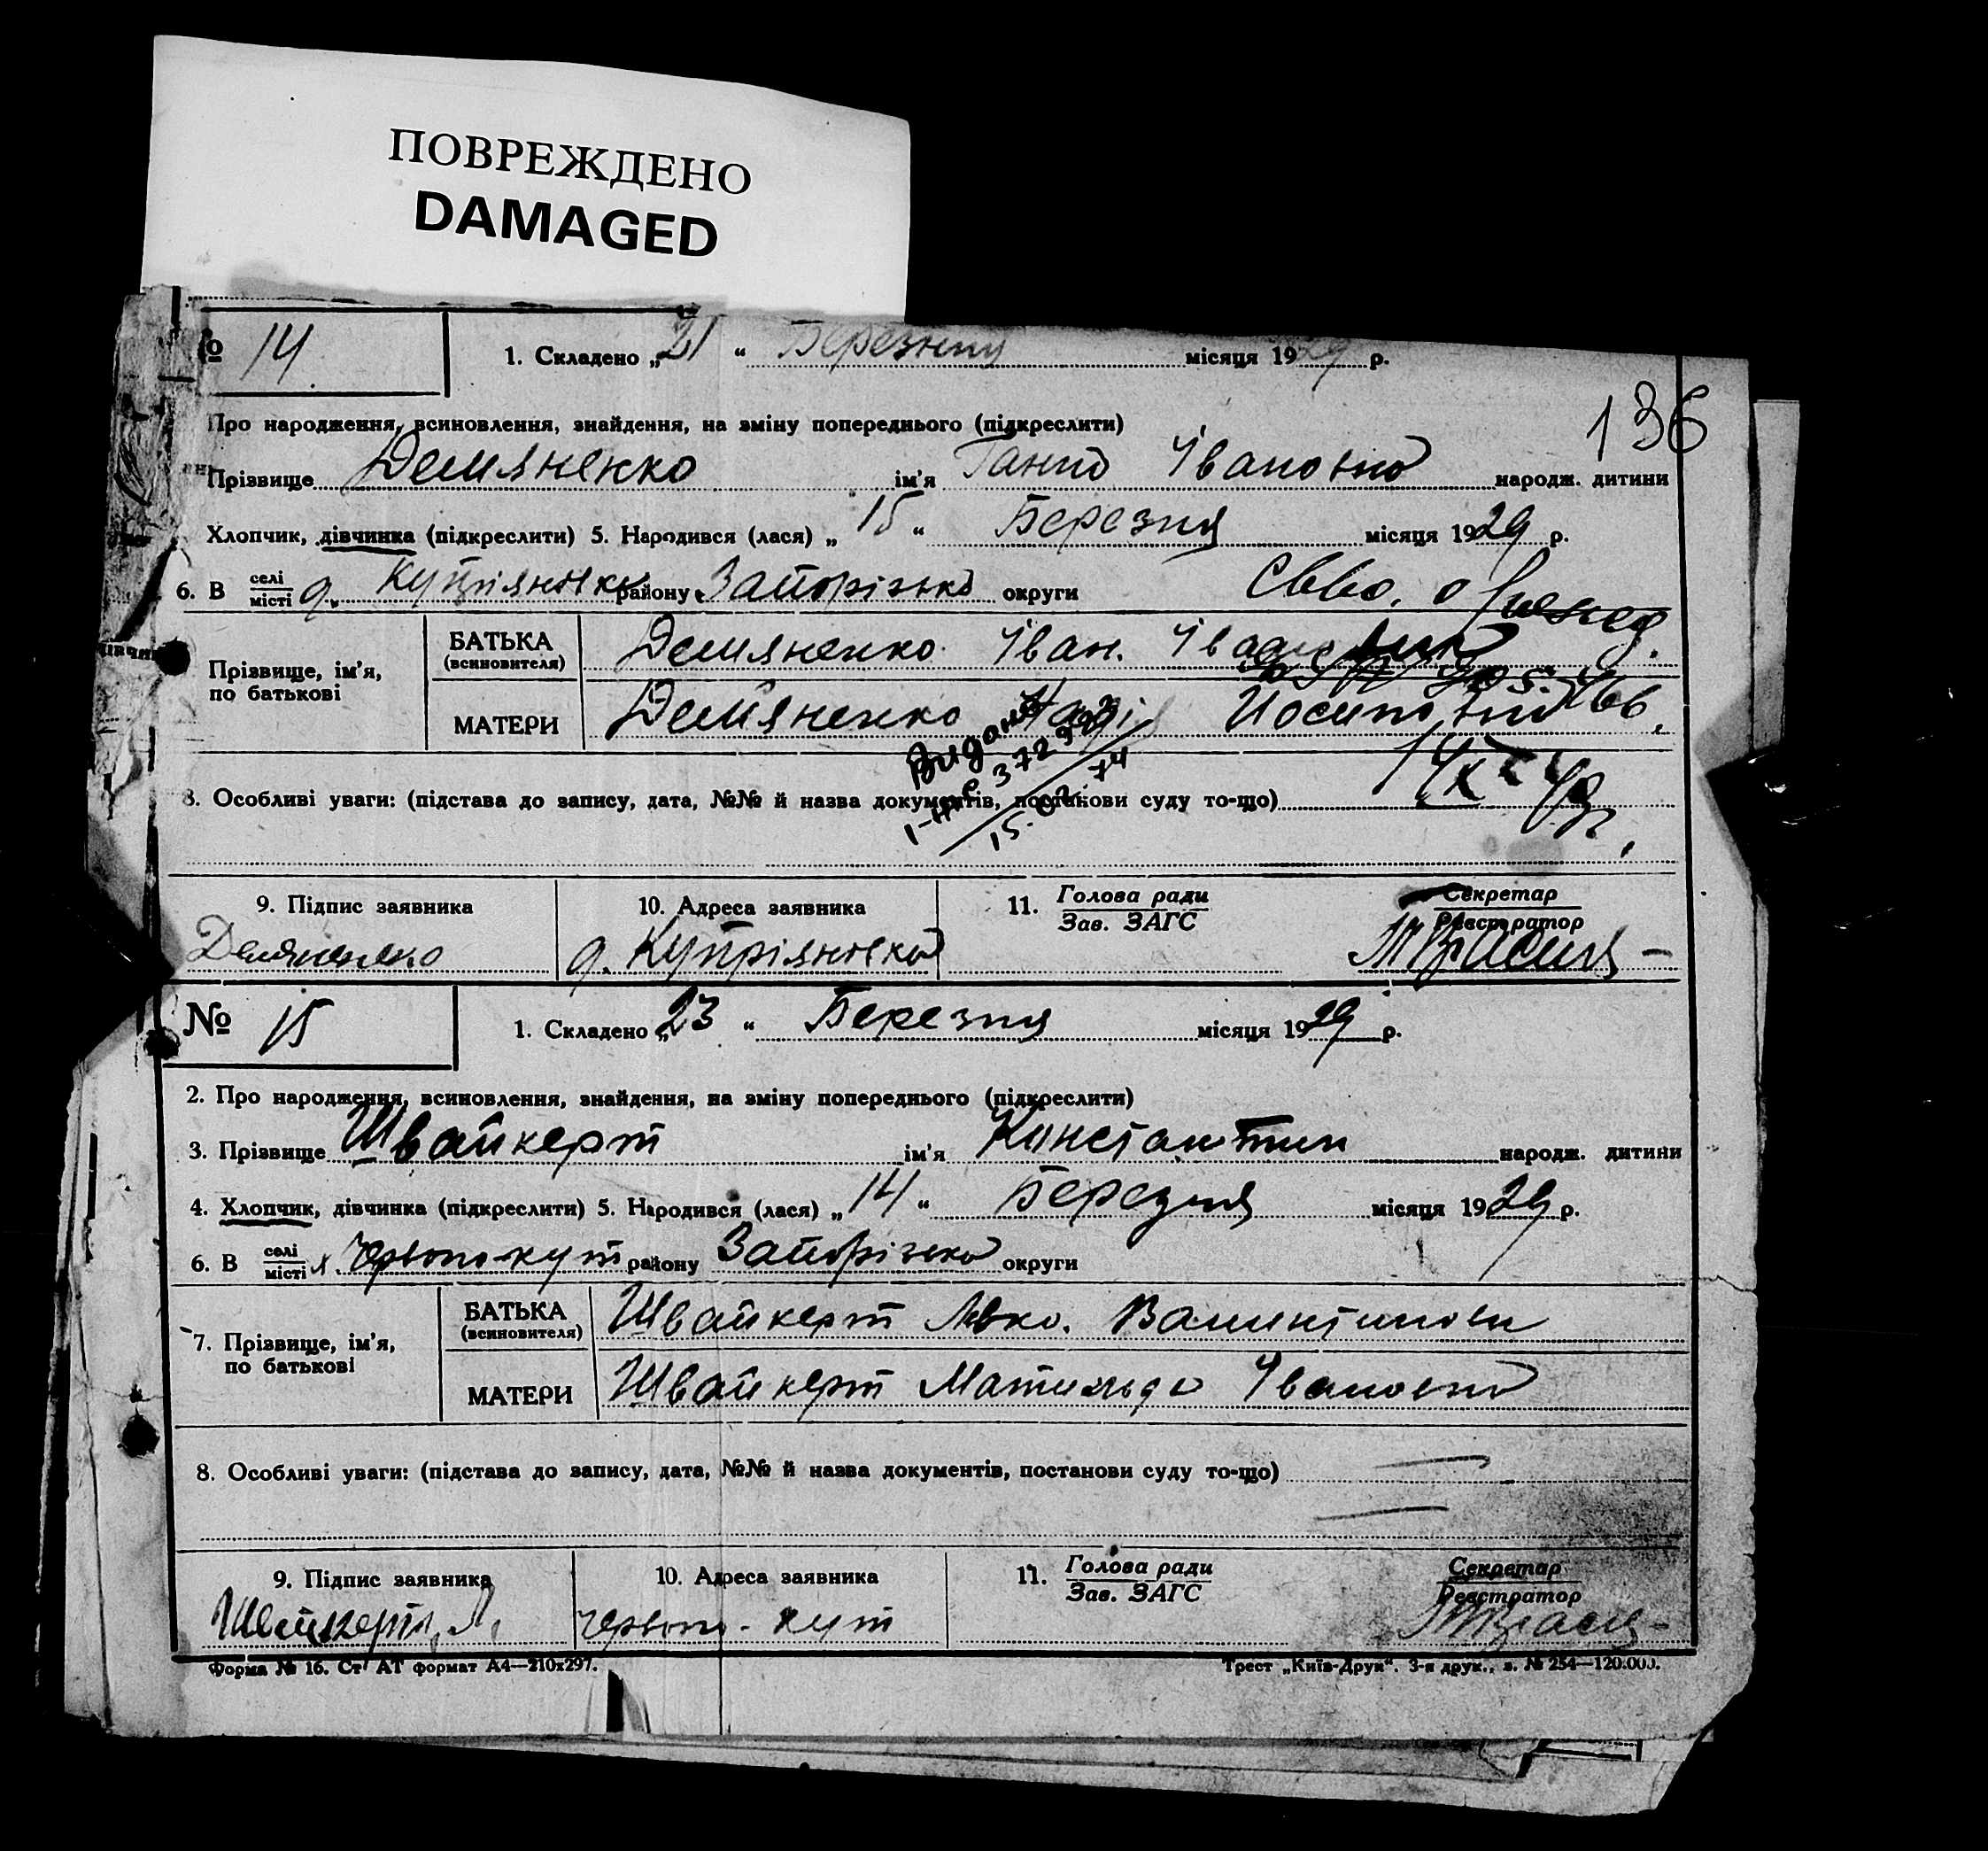 ПОВРЕЖДЕНО
DAMAGED
№ 14
1. Складено „21“ Березня місяця 1929 р.
136
Про народження, всиновлення, знайдення, на зміну попереднього (підкреслити)
Прізвище Демяненко ім'я Ганна Івановна народж. дитини
Хлопчик, дівчинка (підкреслити) 5. Народився (лася) „15“ Березня місяця 1929 р.
6. В селі/місті д. Купріяновка району Запорізька округи
Прізвище, ім'я, по батькові
БАТЬКА (всиновителя) Демяненко Іван
МАТЕРИ Демяненко Надія Иосиповна
Видано
15.02.74
8. Особливі уваги: (підстава до запису, дата, №№ й назва документів, постанови суду то-що)
9. Підпис заявника 10. Адреса заявника 11. Голова ради/Зав. ЗАГС Секретар/Реєстратор
Демяненко д. Купріяновка
№ 15
1. Складено „23“ Березня місяця 1929 р.
2. Про народження, всиновлення, знайдення, на зміну попереднього (підкреслити)
3. Прізвище Швайкерт ім'я Константин народж. дитини
4. Хлопчик, дівчинка (підкреслити) 5. Народився (лася) „14“ Березня місяця 1929 р.
6. В селі/місті х. Червоно-кут району Запорізька округи
7. Прізвище, ім'я, по батькові
БАТЬКА (всиновителя) Швайкерт Левко.
МАТЕРИ Швайкерт Матильда Івановна
8. Особливі уваги: (підстава до запису, дата, №№ й назва документів, постанови суду то-що)
9. Підпис заявника 10. Адреса заявника 11. Голова ради/Зав. ЗАГС Секретар/Реєстратор
Швайкерт Л. Червоно-кут
Форма № 16. Ст АТ формат А4—210х297. Трест „Київ-Друк“. 3-я друк., з. № 254—120.000.